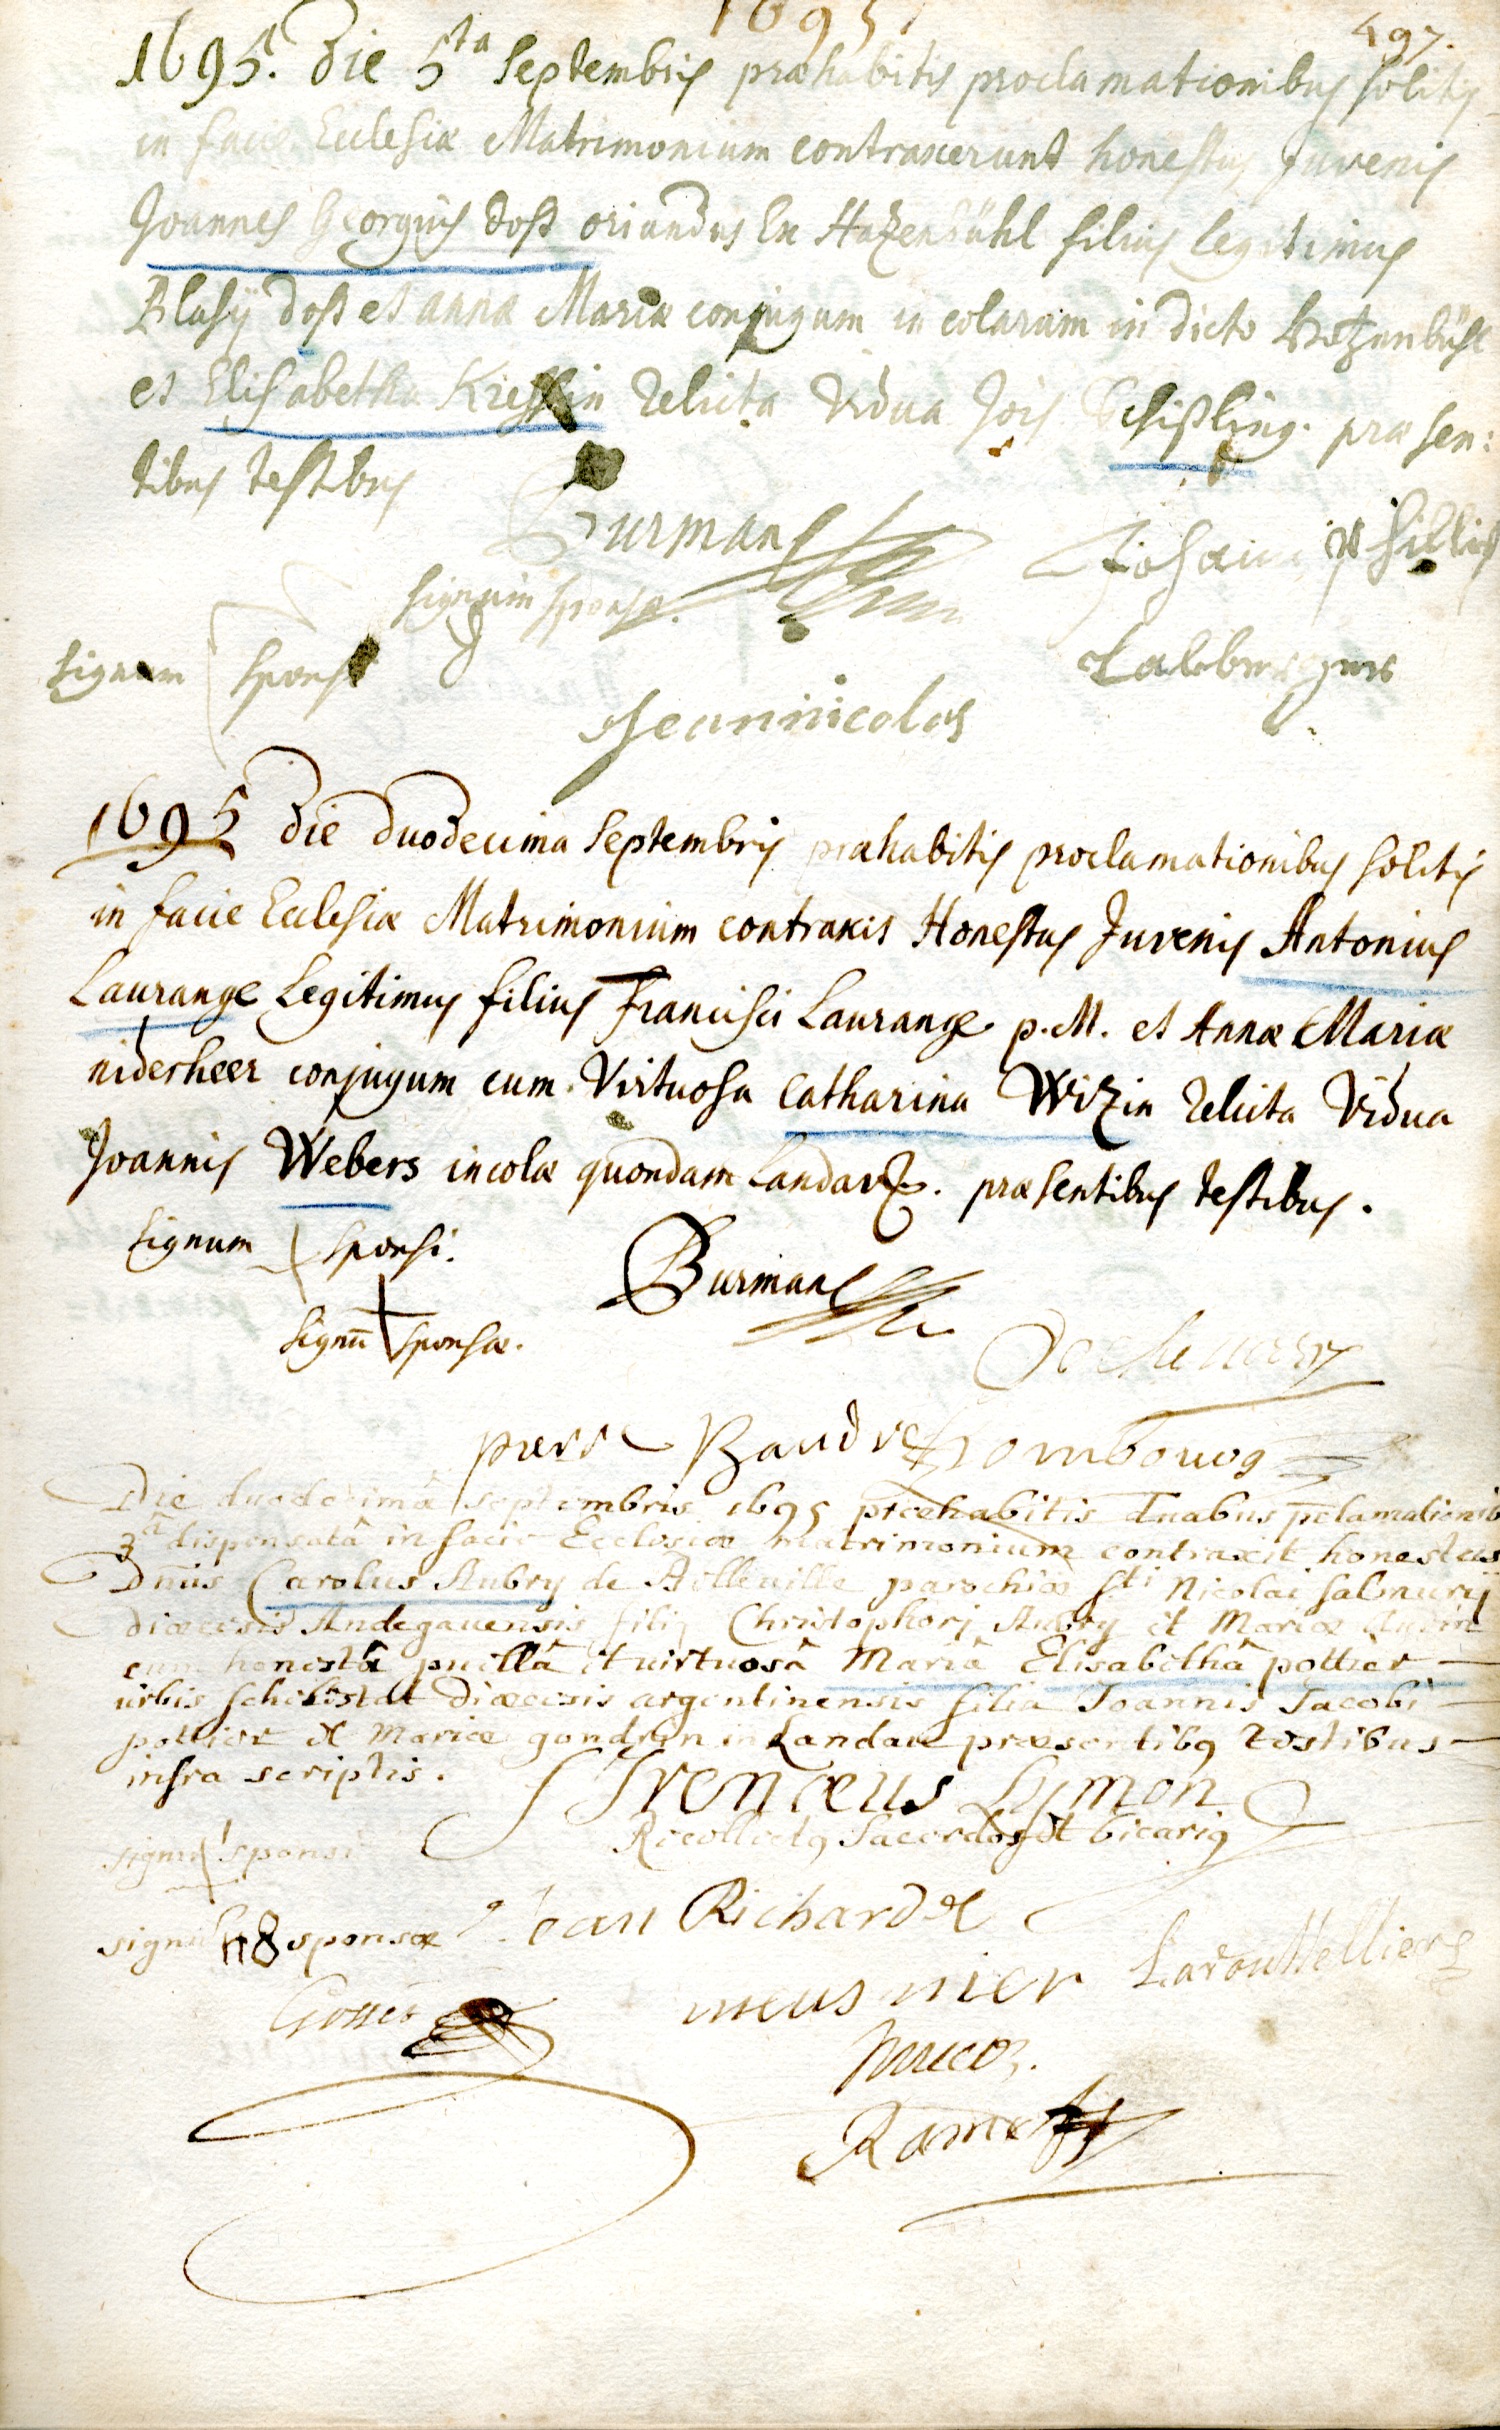 1695
497.
1695. Die 5ta Septembris præhabitis proclamationibus solitis
in facie Ecclesiæ Matrimonium contraxerunt honestus Juvenis
Joannes Georgius doß oriundus Ex Hatzenbühl filius legitimus
Blasij doß et annæ Mariæ conjugum incolarum in dicto Hatzenbühl
et Elisabetha relicta Vidua Jois Schißling. præsen:
tibus testibus
Burman
Johann
signum sponsæ.
Signum sponsi
Jeannicolas
1695 die duodecima Septembris præhabitis proclamationibus solitis
in facie Ecclesiæ Matrimonium contraxit Honestus Juvenis Antonius
Laurange Legitimus filius Francisci Laurange p.M. et Annæ Mariæ
niderheer conjugum cum Virtuosa Catharina Wizin relicta Vidua
Joannis Webers incolæ quondam Landavy. præsentibus testibus.
Signum sponsi.
Burman
Signū sponsæ.
Baudre
Die duodecimâ septembris 1695 præhabitis duabus pclamationib
3â dispensatâ in facie Ecclesiæ matrimonium contraxit honestus
Dnūs Carolus Aubry de parochiæ Sti Nicolai salmurij
diœcesis Andegauensis filius Christophorj Aubry et Mariæ
cum honestâ puellâ et uirtuosâ Mariâ Elisabethâ pottier
urbis schelestat diœcesis argentinensis filia Joannis Jacobi
pottier et Mariæ gondrin in Landau præsentib9 testibus
infra scriptis.
Irenæus Symon
Recollect9 Sacerdos et vicari9
signū sponsi
signū sponsæ
Jean Richard
meusnier
Gosset
Ramet